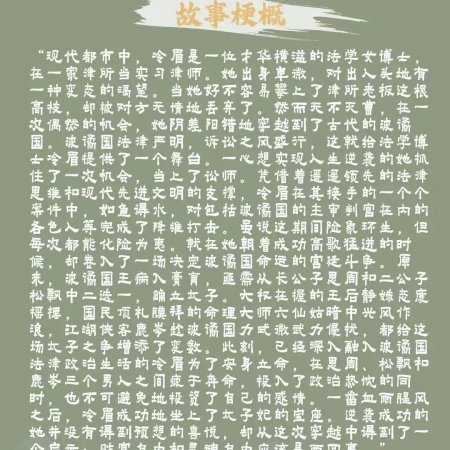 故事梗概
“现代都市中，冷眉是一位才华横溢的法学女博士，
在一家律所当实习律师。她出身卑微，对出人头地有
一种变态的渴望。当她好不容易攀上了律所老板这根
高枝，却被对方无情地丢弃了。然而天不灭曹，在一
次偶然的机会，她阴差阳错地穿越到了古代的波谲
国。波谲国法律严明，诉讼之风盛行，这就给法学博
士冷眉提供了一个舞台。一心想实现人生逆袭的她抓
住了一次机会，当上了讼师。凭借着遥遥领先的法律
思维和现代先进文明的支撑，冷眉在其接手的一个个
案件中，如鱼得水，对包括波谲国的主审判官在内的
各色人等完成了降维打击。虽说这期间险象环生，但
每次都能化险为夷。就在她朝着成功高歌猛进的时
候，却卷入了一场决定波谲国命运的宫廷斗争。原
来，波谲国王病入膏肓，亟需从长公子思周和二公子
松飘中二选一，确立太子。大权在握的王后静姝态度
摇摆，国民顶礼膜拜的命理大师六仙姑暗中兴风作
浪，江湖侠客鹿岑尬波谲国力式微武力侵扰，都给这
场太子之争增添了变数。此刻，已经深入融入波谲国
法律政治生活的冷眉为了安身立命，在思周、松飘和
鹿岑三个男人之间疲于奔命，投入了政治势忱的同
时，也不可避免地投资了自己的感情。一番血雨腥风
之后，冷眉成功地坐上了太子妃的宝座。逆袭成功的
她并没有得到预想的喜悦，却从这次穿越中得到了一